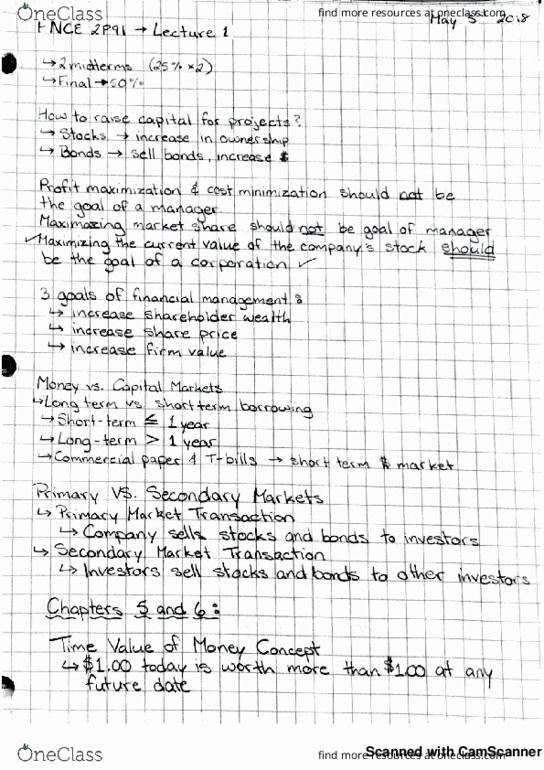 OneClass
find more resources at oneclass.com
May 2018
FNCE 2P91 → Lecture 1
↳ 2 midterms (25% x 2)
↳ Final → 50%
How to raise capital for projects?
↳ Stocks → increase in ownership
↳ Bonds → sell bonds, increase $
Profit maximization & cost minimization should not be
the goal of a manager
Maximazing market share should not be goal of manager
✓Maximizing the current value of the company's stock should
be the goal of a corporation ✓
3 goals of financial management:
↳ increase shareholder wealth
↳ increase share price
↳ increase firm value
Money vs. Capital Markets
↳ Long term vs short term borrowing
↳ Short-term ≤ 1 year
↳ Long-term > 1 year
↳ Commercial paper & T-bills → short term $ market
Primary VS. Secondary Markets
↳ Primary Market Transaction
↳ Company sells stocks and bonds to investors
↳ Secondary Market Transaction
↳ Investors sell stocks and bonds to other investors
Chapters 5 and 6:
Time Value of Money Concept
↳ $1.00 today is worth more than $1.00 at any
future date
OneClass
find more resources at oneclass.com
Scanned with CamScanner